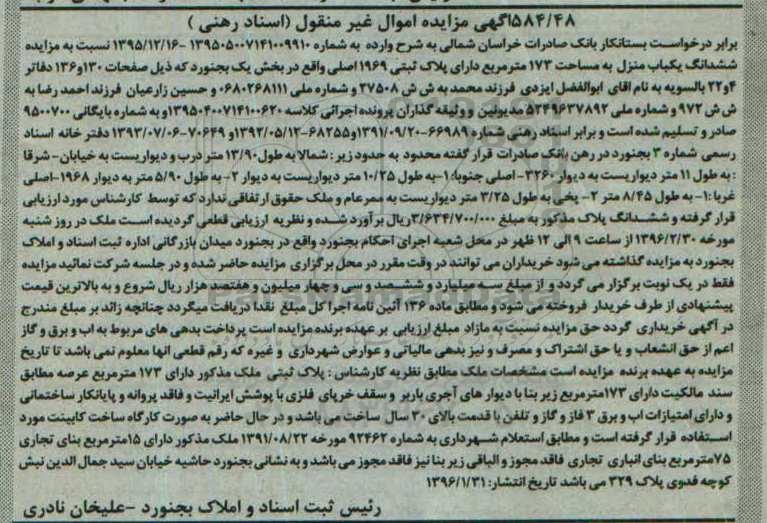 ۵۸۴/۴۸آگهی مزایده اموال غیر منقول (اسناد رهنی )
برابر درخواست بستانکار بانک صادرات خراسان شمالی به شرح وارده به شماره ۱۳۹۵۰۵۰۰۷۱۴۱۰۰۹۹۱۰ -۱۳۹۵/۱۲/۱۶ نسبت به مزایده
ششدانگ یکباب منزل به مساحت ۱۷۳ مترمربع دارای پلاک ثبتی ۱۹۶۹ اصلی واقع در بخش یک بجنورد که ذیل صفحات ۱۳۰و۱۳۶ دفاتر
۴و۲۲ بالسویه به نام اقای ابوالفضل ایزدی فرزند محمد به ش ش ۳۷۵۰۸ و شماره ملی ۰۶۸۰۲۶۸۱۱۱ و حسین زارعیان فرزند احمد رضا به
ش ش ۹۷۲ و شماره ملی ۵۲۴۹۶۳۷۸۹۲ مدیونین و وثیقه گذاران پرونده اجرائی کلاسه ۱۳۹۵۰۴۰۰۷۱۴۱۰۰۶۲۰و به شماره بایگانی ۹۵۰۰۷۰۰
صادر و تسلیم شده است و برابر اسناد رهنی شماره ۶۶۹۸۹-۱۳۹۱/۰۹/۲۰و۶۸۲۵۵-۱۳۹۲/۰۵/۱۲و ۷۰۶۴۹-۱۳۹۳/۰۷/۰۶ دفتر خانه اسناد
رسمی شماره ۳ بجنورد در رهن بانک صادرات قرار گفته محدود به حدود زیر : شمالا به طول ۱۳/۹۰ متر درب و دیواریست به خیابان- شرقا
: به طول ۱۱ متر دیواریست به دیوار ۳۲۶۰- اصلی جنوبا: ۱-به طول ۱۰/۲۵ متر دیواریست به دیوار ۲- به طول ۵/۹۰ متر به دیوار ۱۹۶۸-اصلی
غربا :۱- به طول ۸/۴۵ متر ۲- پخی به طول ۳/۲۵ متر دیواریست به ممرعام و ملک حقوق ارتفاقی ندارد که توسط کارشناس مورد ارزیابی
قرار گرفته و ششدانگ پلاک مذکور به مبلغ ۳/۶۳۴/۷۰۰/۰۰۰ریال برآورد شده و نظریه ارزیابی قطعی گردیده است ملک در روز شنبه
مورخه ۱۳۹۶/۲/۳۰ از ساعت ۹ الی ۱۲ ظهر در محل شعبه اجرای احکام بجنورد واقع در بجنورد میدان بازرگانی اداره ثبت اسناد و املاک
بجنورد به مزایده گذاشته می شود خریداران می توانند در وقت مقرر در محل برگزاری مزایده حاضر شده و در جلسه شرکت نمائید مزایده
فقط در یک نوبت برگزار می گردد و از مبلغ سه میلیارد و ششصد و سی و چهار میلیون و هفتصد هزار ریال شروع و به بالاترین قیمت
پیشنهادی از طرف خریدار فروخته می شود و مطابق ماده ۱۳۶ آئین نامه اجرا کل مبلغ نقدا دریافت میگردد چنانچه زائد بر مبلغ مندرج
در آگهی خریداری گردد حق مزایده نسبت به مازاد مبلغ ارزیابی بر عهده برنده مزایده است پرداخت بدهی های مربوط به اب و برق و گاز
اعم از حق انشعاب و یا حق اشتراک و مصرف و نیز بدهی مالیاتی و عوارض شهرداری و غیره که رقم قطعی انها معلوم نمی باشد تا تاریخ
مزایده به عهده برنده مزایده است مشخصات ملک مطابق نظریه کارشناس : پلاک ثبتی ملک مذکور دارای ۱۷۳ مترمربع عرصه مطابق
سند مالکیت دارای ۱۷۳مترمربع زیر بنا با دیوار های آجری باربر و سقف خرپای فلزی با پوشش ایرانیت و فاقد پروانه و پایانکار ساختمانی
و دارای امتیازات اب و برق ۳ فاز و گاز و تلفن با قدمت بالای ۳۰ سال ساخت می باشد و در حال حاضر به صورت کارگاه ساخت کابینت مورد
استفاده قرار گرفته است و مطابق استعلام شهرداری به شماره ۹۲۴۶۲ مورخه ۱۳۹۱/۰۸/۲۲ ملک مذکور دارای ۱۵مترمربع بنای تجاری
۷۵مترمربع بنای انباری تجاری فاقد مجوز و الباقی زیر بنا نیز فاقد مجوز می باشد و به نشانی بجنورد حاشیه خیابان سید جمال الدین نبش
کوچه فدوی پلاک ۳۲۹ می باشد تاریخ انتشار: ۱۳۹۶/۱/۳۱
رئیس ثبت اسناد و املاک بجنورد -علیخان نادری